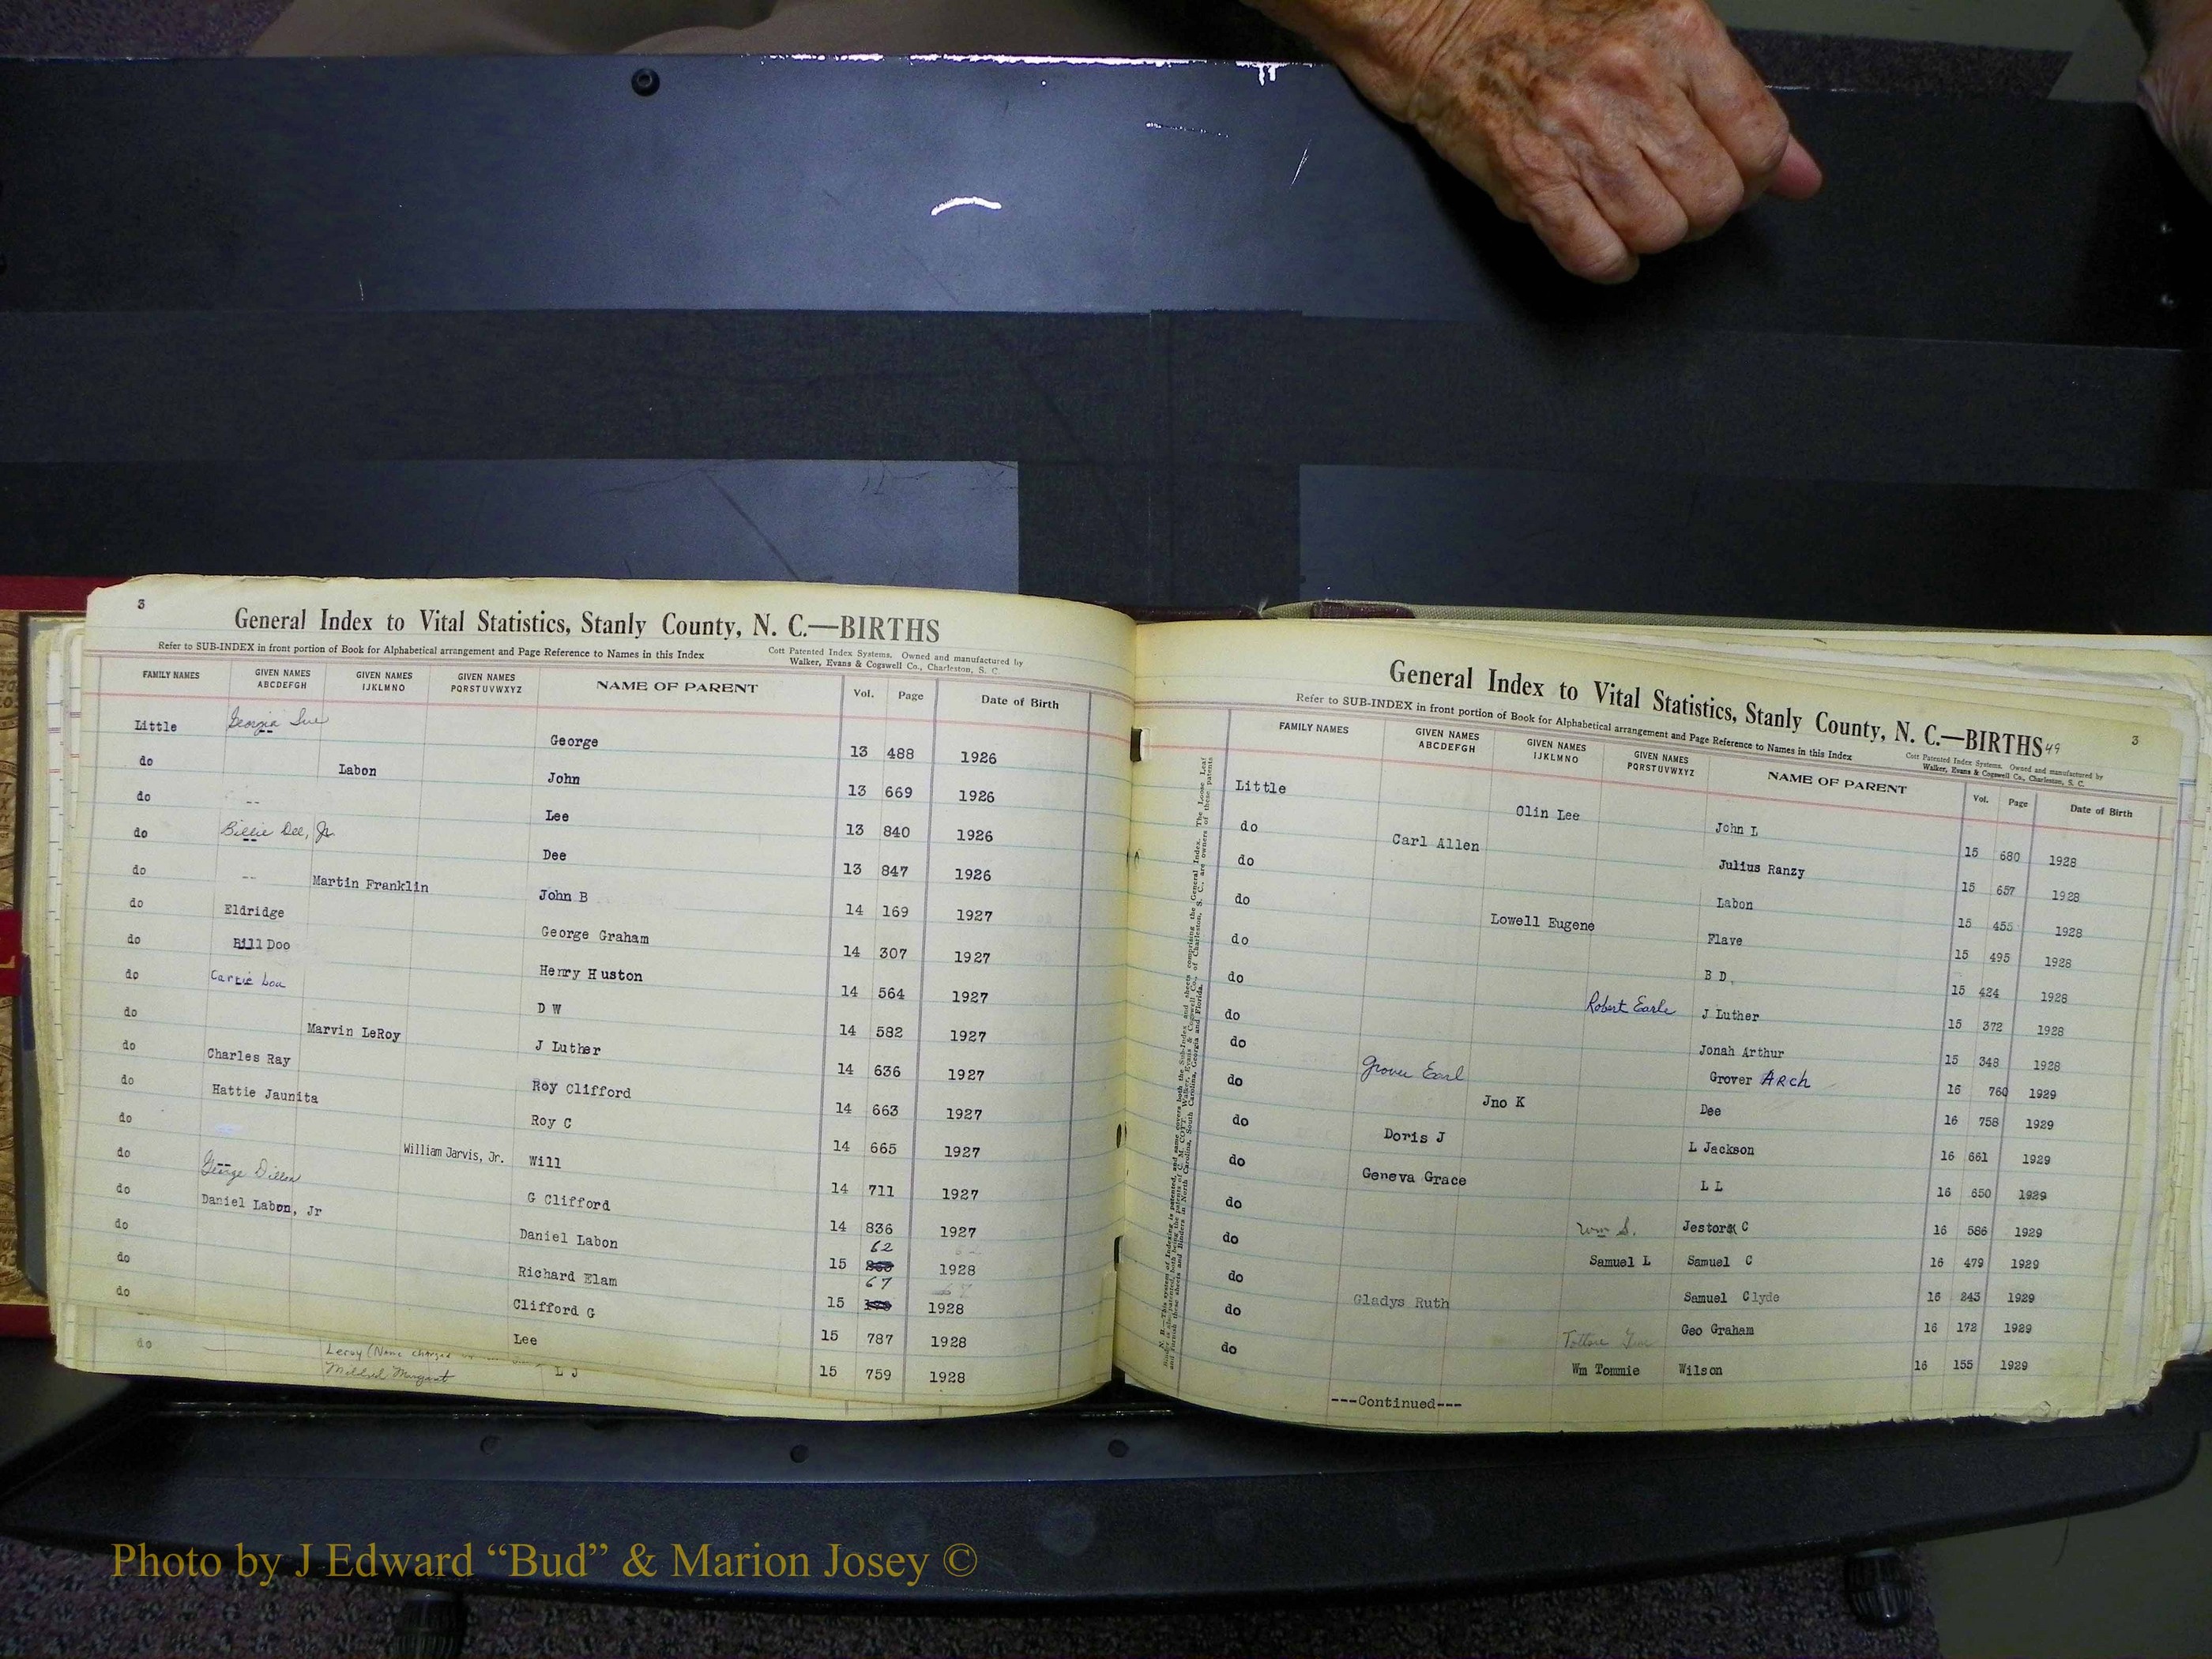 3
General Index to Vital Statistics, Stanly County, N. C.—BIRTHS
Refer to SUB-INDEX in front portion of Book for Alphabetical arrangement and Page Reference to Names in this Index
Cott Patented Index Systems. Owned and manufactured by
Walker, Evans & Cogswell Co., Charleston, S. C.
FAMILY NAMES GIVEN NAMES ABCDEFGH GIVEN NAMES IJKLMNO GIVEN NAMES PQRSTUVWXYZ NAME OF PARENT Vol. Page Date of Birth
Little Georgia Sue George 13 488 1926
do Labon John 13 669 1926
do -- Lee 13 840 1926
do Billie Dee, Jr. Dee 13 847 1926
do -- Martin Franklin John B 14 169 1927
do Eldridge George Graham 14 307 1927
do Bill Doo Henry Huston 14 564 1927
do Carrie Lou D W 14 582 1927
do Marvin LeRoy J Luther 14 636 1927
do Charles Ray Roy Clifford 14 663 1927
do Hattie Jaunita Roy C 14 665 1927
do William Jarvis, Jr. Will 14 711 1927
do George Dillon G Clifford 14 836 1927
do Daniel Labon, Jr Daniel Labon 15 62 1928
do Richard Elam 15 67 1928
do Clifford G 15 787 1928
do Lee 15 759 1928
do Leroy (Name changed
Mildred Margaret L J
General Index to Vital Statistics, Stanly County, N. C.—BIRTHS 49
3
Refer to SUB-INDEX in front portion of Book for Alphabetical arrangement and Page Reference to Names in this Index
Cott Patented Index Systems. Owned and manufactured by
Walker, Evans & Cogswell Co., Charleston, S. C.
FAMILY NAMES GIVEN NAMES ABCDEFGH GIVEN NAMES IJKLMNO GIVEN NAMES PQRSTUVWXYZ NAME OF PARENT Vol. Page Date of Birth
Little Olin Lee John L 15 680 1928
do Carl Allen Julius Ranzy 15 657 1928
do Labon 15 455 1928
do Lowell Eugene Flave 15 495 1928
do B D 15 424 1928
do Robert Earle J Luther 15 372 1928
do Jonah Arthur 15 348 1928
do Grover Earl Grover Arch 16 760 1929
do Jno K Dee 16 758 1929
do Doris J L Jackson 16 661 1929
do Geneva Grace L L 16 650 1929
do Wm S. Jestor C 16 586 1929
do Samuel L Samuel C 16 479 1929
do Samuel Clyde 16 243 1929
do Gladys Ruth Geo Graham 16 172 1929
do Wm Tommie Wilson 16 155 1929
---Continued---
Photo by J Edward “Bud” & Marion Josey ©